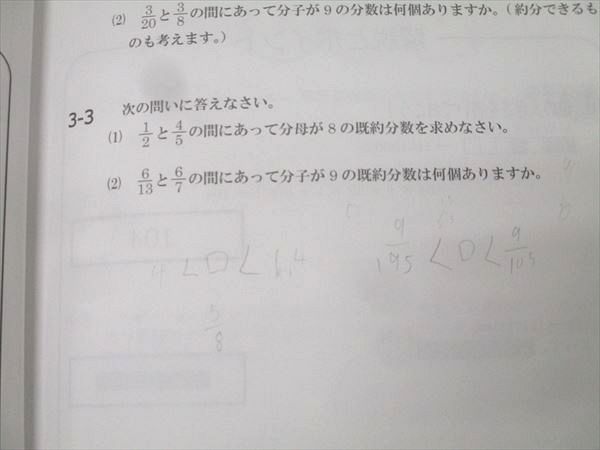 (2) 3/20 と 3/8 の間にあって分子が 9 の分数は何個ありますか。(約分できるも
のも考えます。)
3-3 次の問いに答えなさい。
(1) 1/2 と 4/5 の間にあって分母が 8 の既約分数を求めなさい。
(2) 6/13 と 6/7 の間にあって分子が 9 の既約分数は何個ありますか。
4 < □ < 6.4
5/8